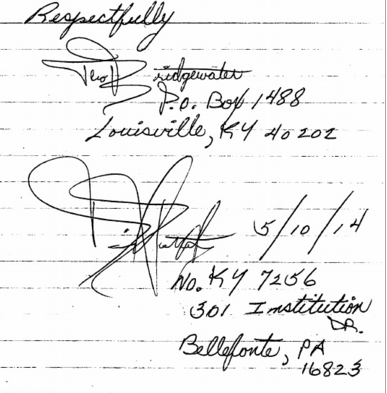 Respectfully
Bridgewater
P.O. Box 1488
Louisville, KY 40202
5/10/14
No. KY 7256
301 Institution
DR.
Bellefonte, PA
16823